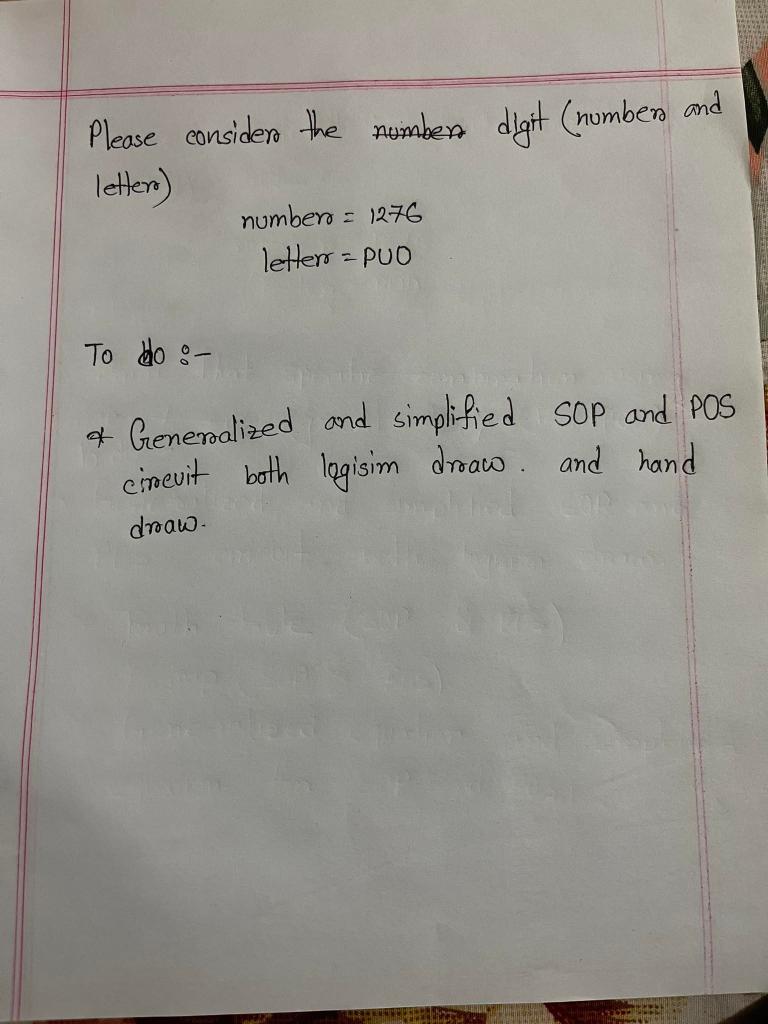 Please consider the number digit (number and
letter)
number = 1276
letter = PUO
To do :-
* Generalized and simplified SOP and POS
circuit both logisim draw. and hand
draw.